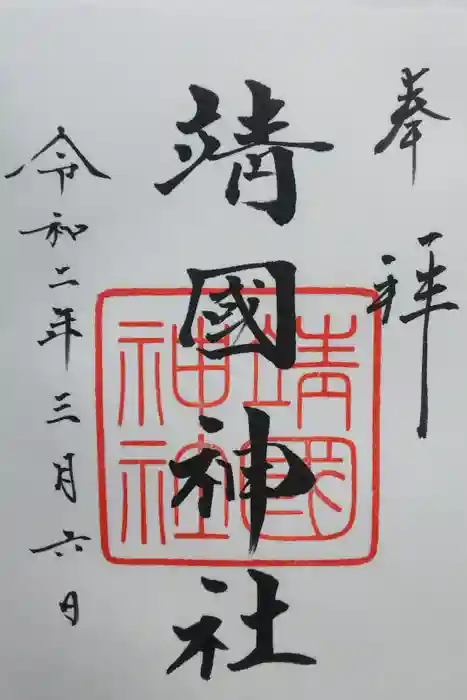 奉拜
靖國神社
靖國
神社
令和二年三月六日